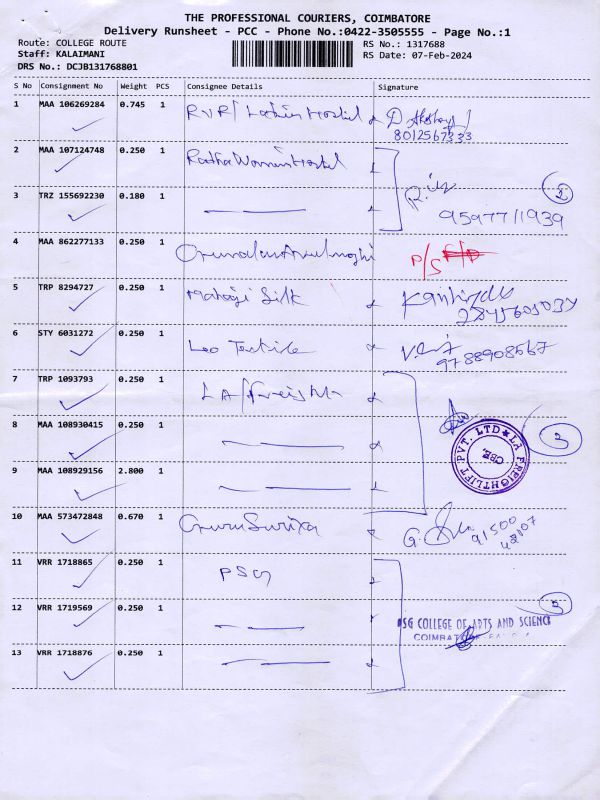 THE PROFESSIONAL COURIERS, COIMBATORE
Delivery Runsheet - PCC - Phone No.:0422-3505555 - Page No.:1
Route: COLLEGE ROUTE RS No.: 1317688
Staff: KALAIMANI RS Date: 07-Feb-2024
DRS No.: DCJB131768801
S No Consignment No Weight PCS Consignee Details Signature
1 MAA 106269284 0.745 1 RVR/ Ladies Hostel
8012567333
2 MAA 107124748 0.250 1 Radha Women Hostel
3 TRZ 155692230 0.180 1
9597711939
2
4 MAA 862277133 0.250 1 P/S
5 TRP 8294727 0.250 1 Mahaji Silk
6 STY 6031272 0.250 1 Leo Textile
9788908567
7 TRP 1093793 0.250 1 LA/
8 MAA 108930415 0.250 1
LA FREIGHTLIFT PVT. LTD
CBE.
3
9 MAA 108929156 2.800 1
10 MAA 573472848 0.670 1 Guru Surya G.
91500
11 VRR 1718865 0.250 1 PSG
12 VRR 1719569 0.250 1
3
PSG COLLEGE OF ARTS AND SCIENCE
13 VRR 1718876 0.250 1